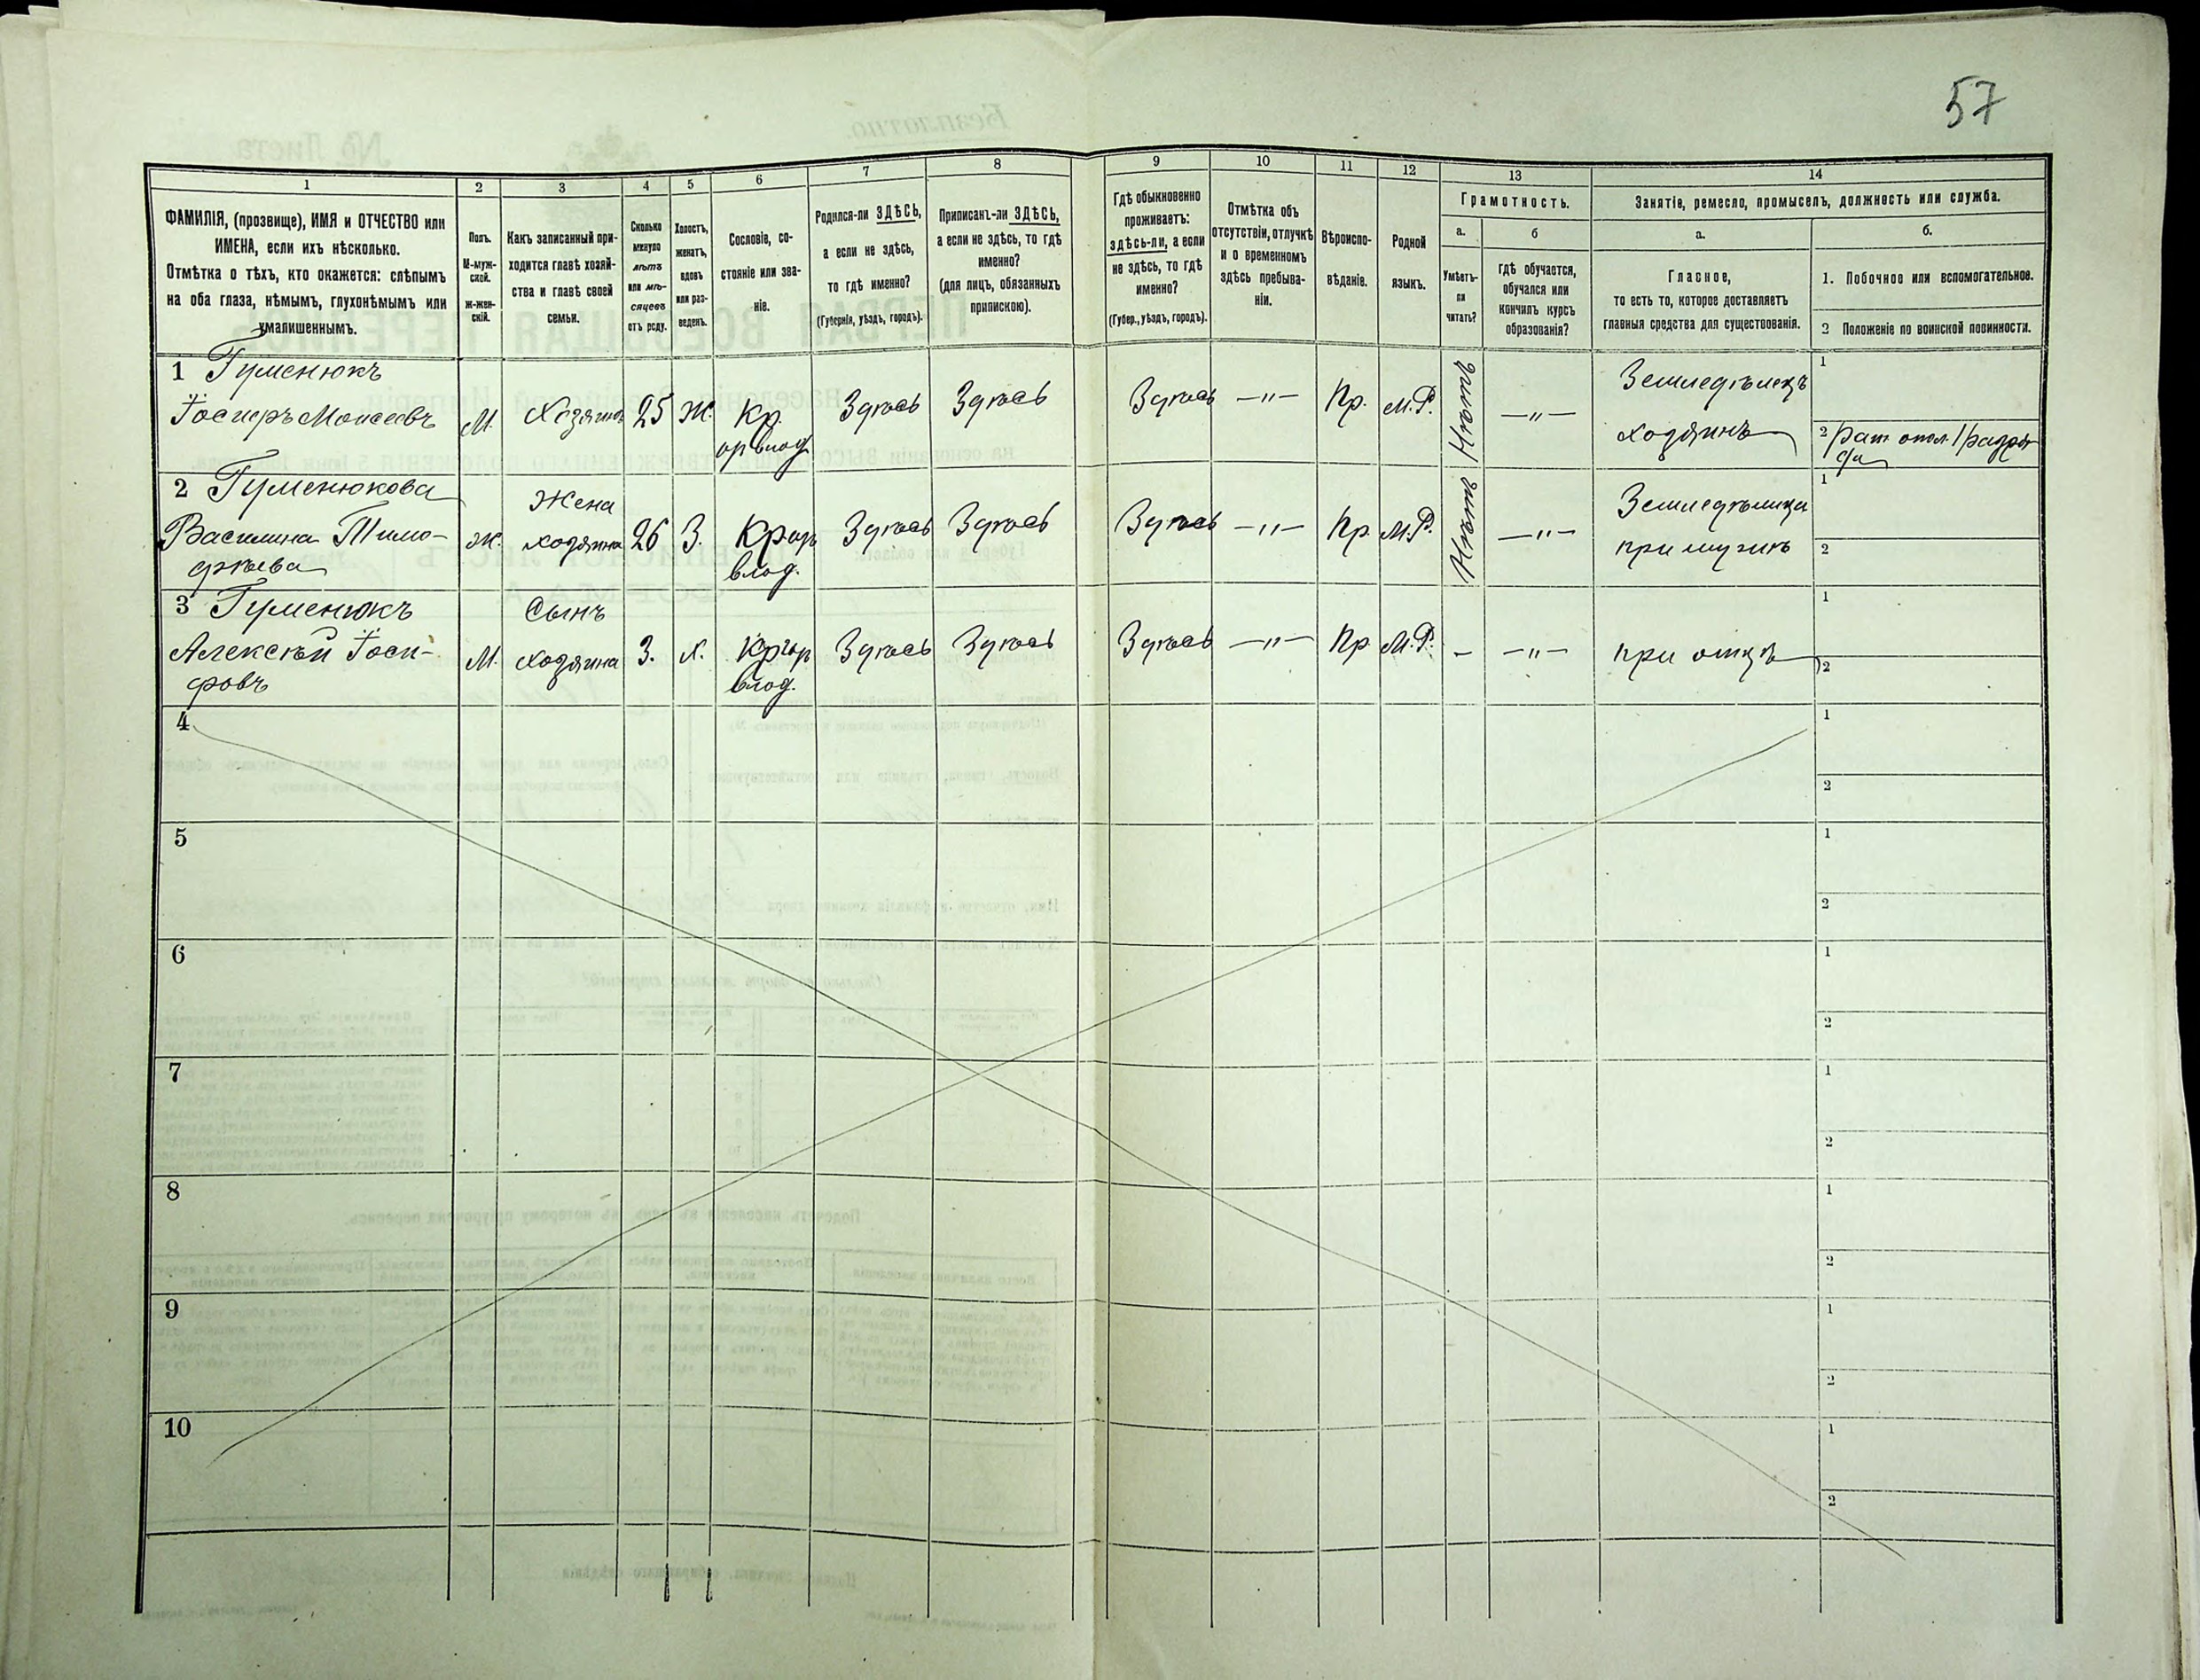 57
1
2
3
4
5
6
7
8
9
10
11
12
13
14
ФАМИЛІЯ, (прозвище), ИМЯ и ОТЧЕСТВО или
ИМЕНА, если ихъ нѣсколько.
Отмѣтка о тѣхъ, кто окажется: слѣпымъ
на оба глаза, нѣмымъ, глухонѣмымъ или
умалишеннымъ.
Полъ.
М-муж-
ской.
ж-жен-
скій.
Какъ записанный при-
ходится главѣ хозяй-
ства и главѣ своей
семьи.
Сколько
минуло
лѣтъ
или мѣ-
сяцевъ
отъ роду.
Холостъ,
женатъ,
вдовъ
или раз-
веденъ.
Сословіе, со-
стояніе или зва-
ніе.
Родился-ли ЗДѢСЬ,
а если не здѣсь,
то гдѣ именно?
(Губернія, уѣздъ, городъ).
Приписанъ-ли ЗДѢСЬ,
а если не здѣсь, то гдѣ
именно?
(для лицъ, обязанныхъ
припискою).
Гдѣ обыкновенно
проживаетъ:
здѣсь-ли, а если
не здѣсь, то гдѣ
именно?
(Губер., уѣздъ, городъ).
Отмѣтка объ
отсутствіи, отлучкѣ
и о временномъ
здѣсь пребыва-
ніи.
Вѣроиспо-
вѣданіе.
Родной
языкъ.
Грамотность.
а.
Умѣетъ-
ли
читать?
б
гдѣ обучается,
обучался или
кончилъ курсъ
образованія?
Занятіе, ремесло, промыселъ, должность или служба.
а.
Главное,
то есть то, которое доставляетъ
главныя средства для существованія.
б.
1. Побочное или вспомогательное.
2 Положеніе по воинской повинности.
1 Гуменюкъ
Іосифъ Моисеевъ
М.
Хозяинъ
25
Ж.
Кр.
Здѣсь
Здѣсь
Здѣсь
—"—
Пр.
М.Р.
Нѣтъ
—"—
Земледѣлецъ
хозяинъ
1
2 рат. опол. 1 разря-
да
2 Гуменюкова
Василина Тимо-
фѣева
Ж.
Жена
хозяина
26
З.
влад.
Здѣсь
Здѣсь
Здѣсь
—"—
Пр.
М.Р.
Нѣтъ
—"—
Земледѣлица
при мужѣ
1
2
3 Гуменюкъ
Алексѣй Іоси-
фовъ
М.
Сынъ
хозяина
3.
Х.
влад.
Здѣсь
Здѣсь
Здѣсь
—"—
Пр.
М.Р.
–
—"—
при отцѣ
1
2
4
1
2
5
1
2
6
1
2
7
1
2
8
1
2
9
1
2
10
1
2